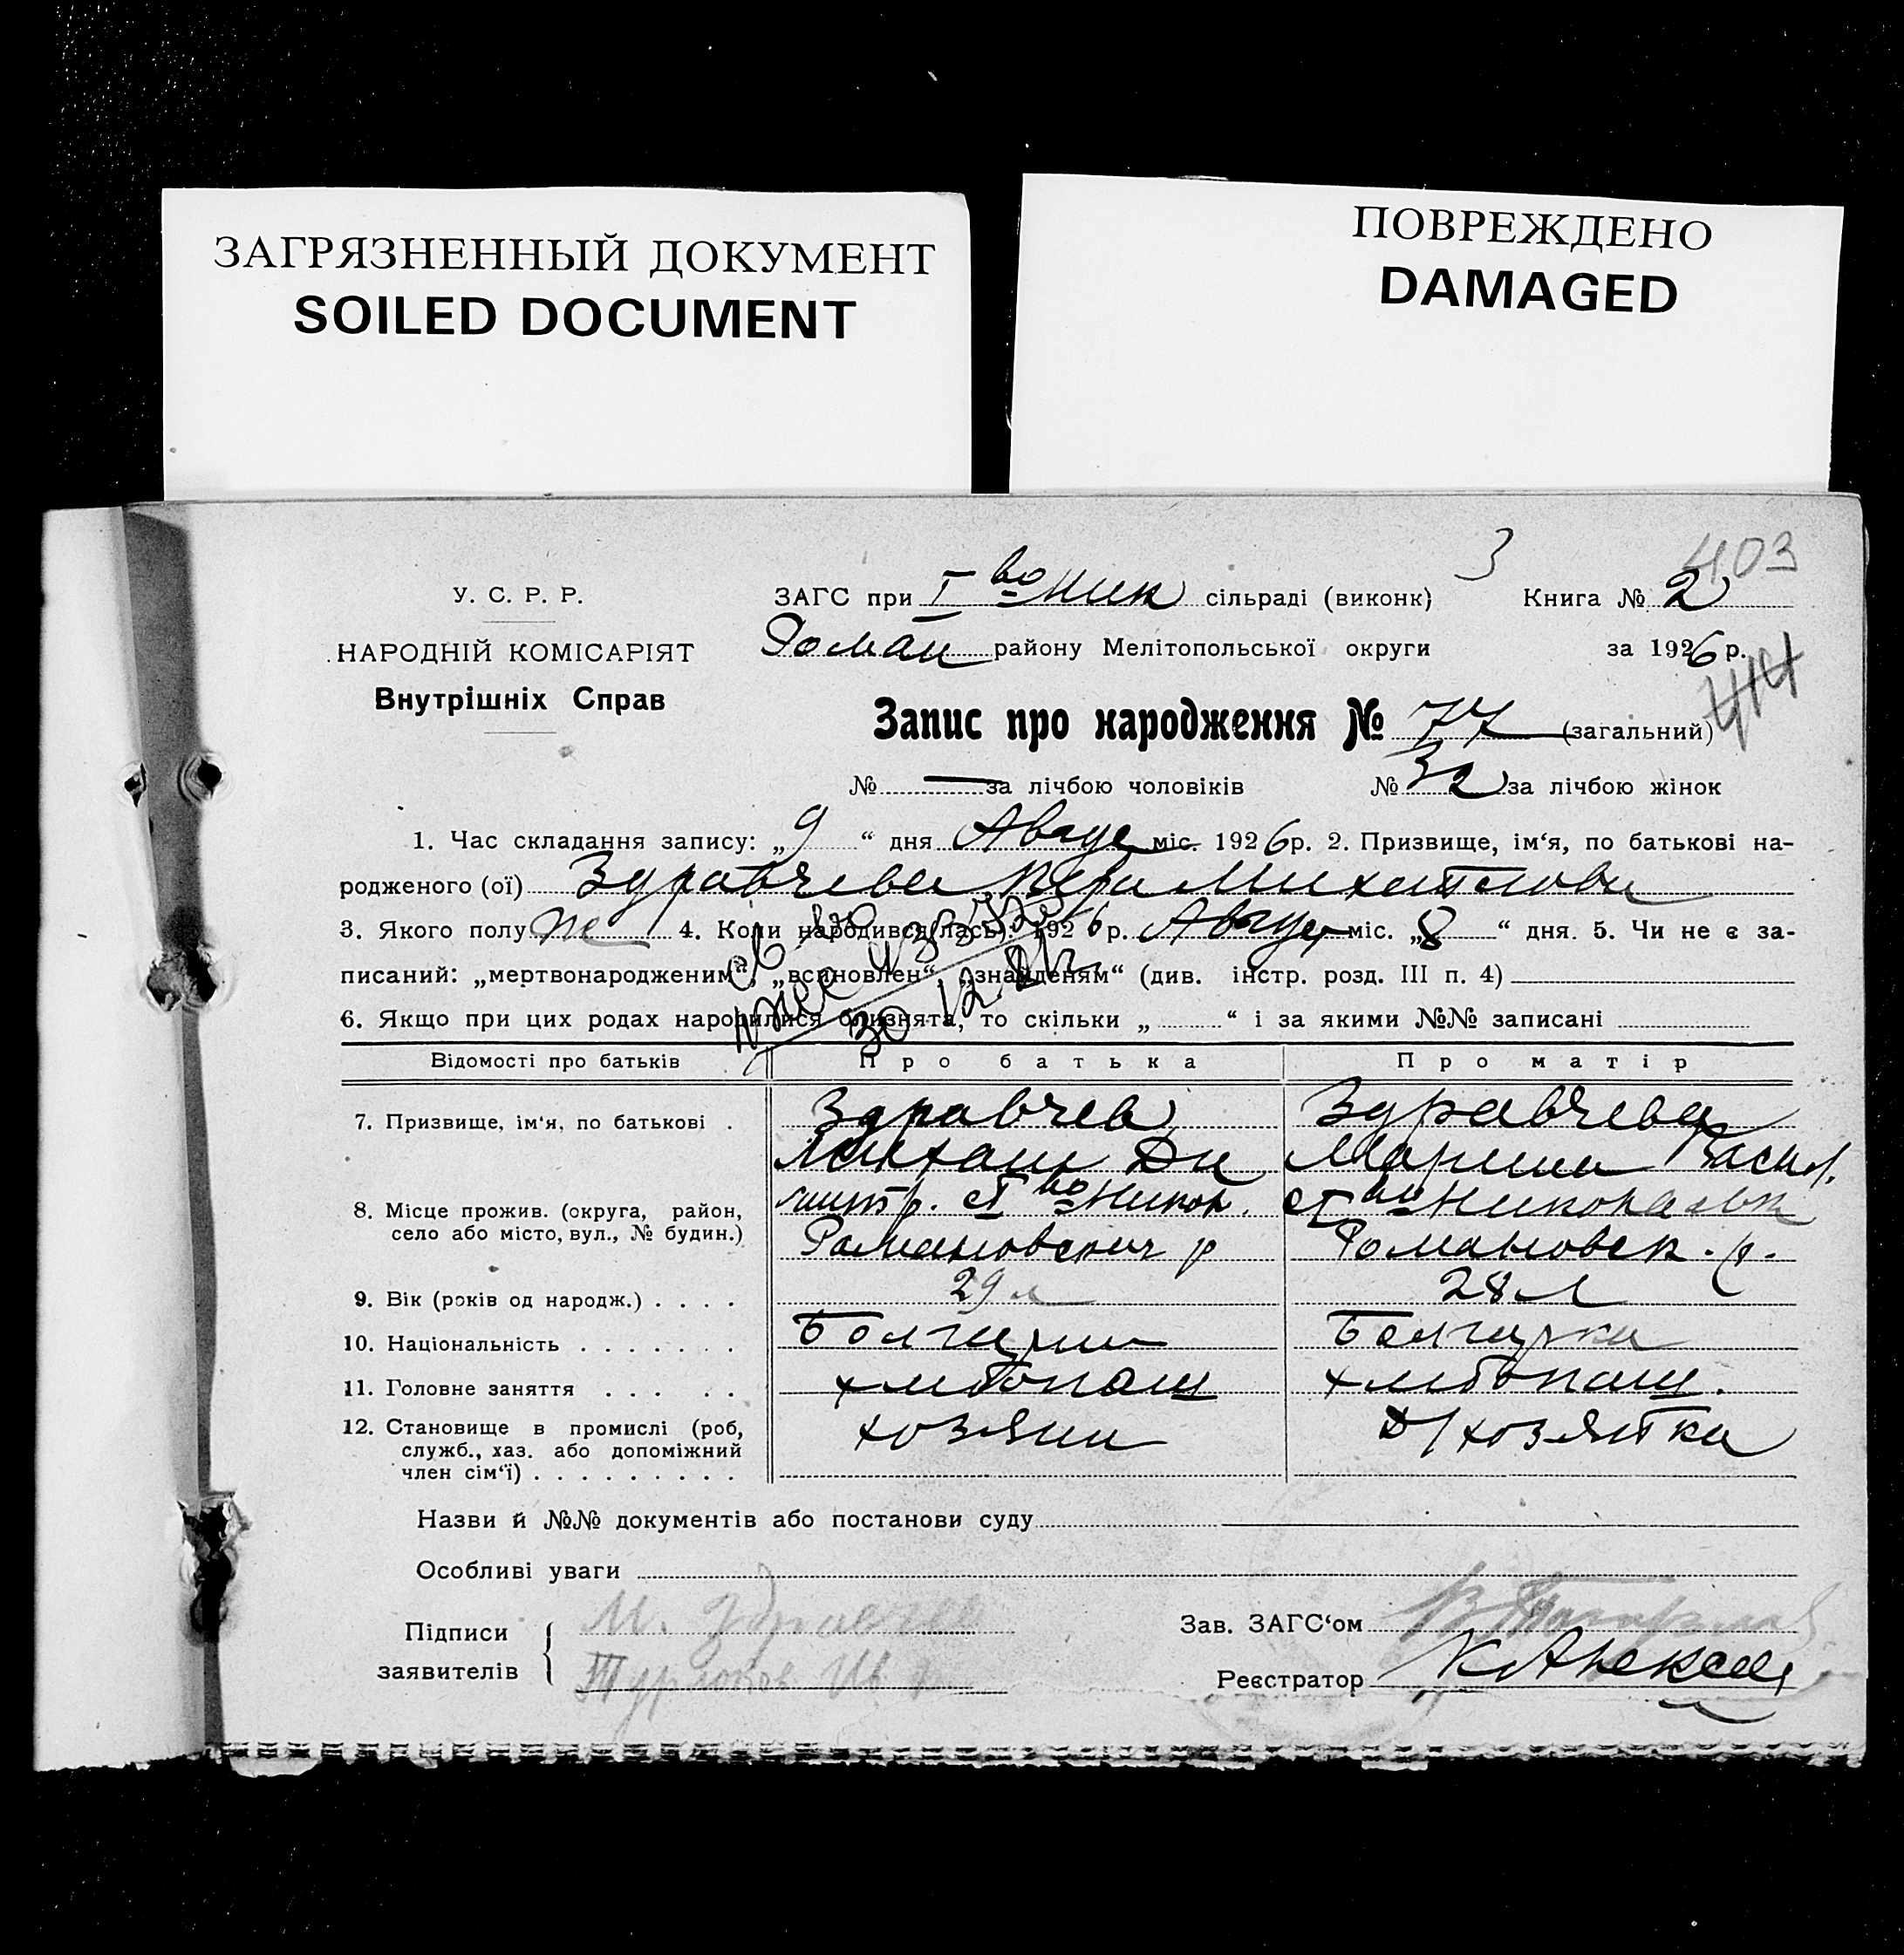 ЗАГРЯЗНЕННЫЙ ДОКУМЕНТ
SOILED DOCUMENT
ПОВРЕЖДЕНО
DAMAGED
3
403
У. С. Р. Р.
НАРОДНІЙ КОМІСАРІЯТ
Внутрішніх Справ
ЗАГС при І во Ник сільраді (виконк)
Книга № 2
Роман району Мелітопольської округи
за 1926 р.
Запис про народження № 77 (загальний)
№ — за лічбою чоловіків № 32 за лічбою жінок
1. Час складання запису: „9“ дня Авгус міс. 1926 р. 2. Призвище, ім‘я, по батькові на-
родженого (ої) Здравчева Михайлова
3. Якого полу ж 4. Коли народився(лась): 1926 р. Август міс. „8“ дня. 5. Чи не є за-
писаний: „мертвонародженим“, „всиновлен“, „знайденям“ (див. інстр. розд. III п. 4)
6. Якщо при цих родах народилися близнята, то скільки „ “ і за якими №№ записані
Відомості про батьків
Про батька
Про матір
7. Призвище, ім‘я, по батькові .
Здравчев
Михаил Дм
митр.
Здравчева
Марина Васил.
8. Місце прожив. (округа, район,
село або місто, вул., № будин.)
с І во Никол.
Романовский р
с І во Никола
Романовск. р.
9. Вік (років од народж.) . . . .
29 л
28 л
10. Національність . . . . . . .
Болгарин
Болгарка
11. Головне заняття . . . . .
хлібопаш
хлібопаш.
12. Становище в промислі (роб,
служб., хаз. або допоміжний
член сім‘ї) . . . . . . . . .
хозяин
д/хозяйка
Назви й №№ документів або постанови суду
Особливі уваги
Підписи
заявителів
М. Здравчев
Зав. ЗАГС‘ом
Реєстратор
К Алексе